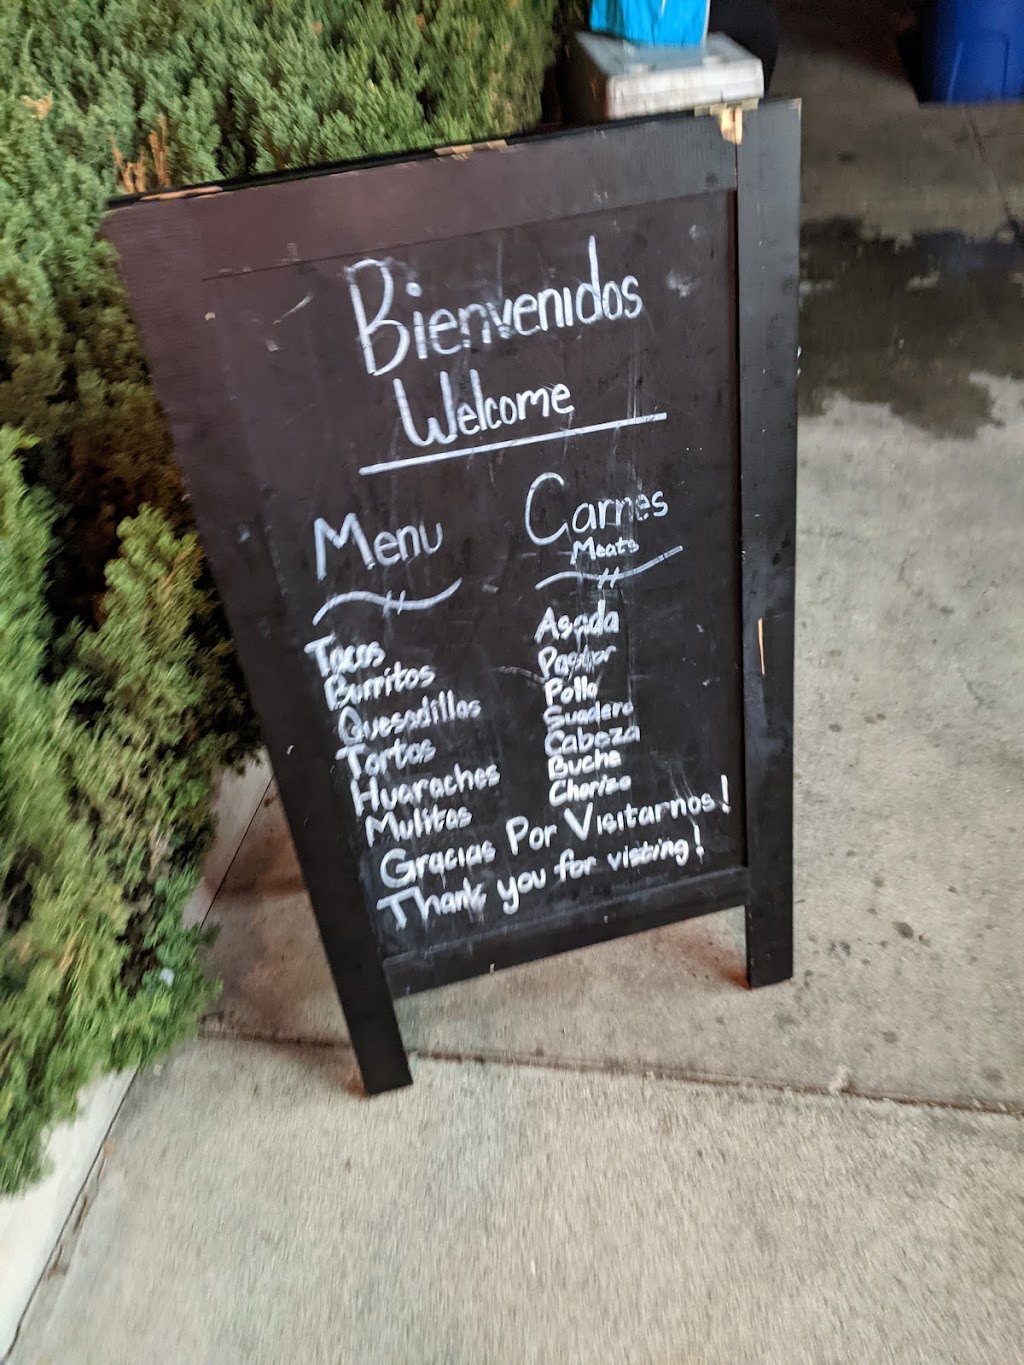 Bienvenidos
Welcome
Menu
Tacos
Burritos
Quesadillas
Tortas
Huaraches
Mulitas
Carnes
Meats
Asada
Pastor
Pollo
Suadero
Cabeza
Buche
Chorizo
Gracias Por Visitarnos!
Thank you for visiting!